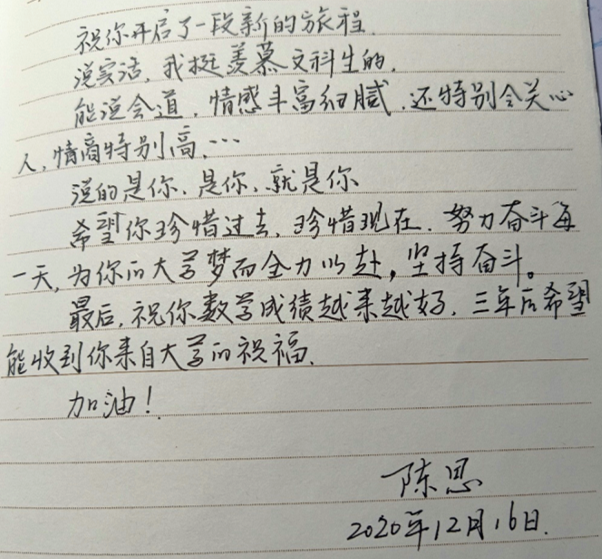 祝你开启了一段新的旅程.
说实话,我挺羡慕文科生的.
能说会道,情感丰富细腻.还特别会关心
人,情商特别高,…
说的是你,是你,就是你
希望你珍惜过去,珍惜现在.努力奋斗每
一天,为你的大学梦而全力以赴,坚持奋斗。
最后,祝你数学成绩越来越好.三年后希望
能收到你来自大学的祝福.
加油!
陈思
2020年12月16日.